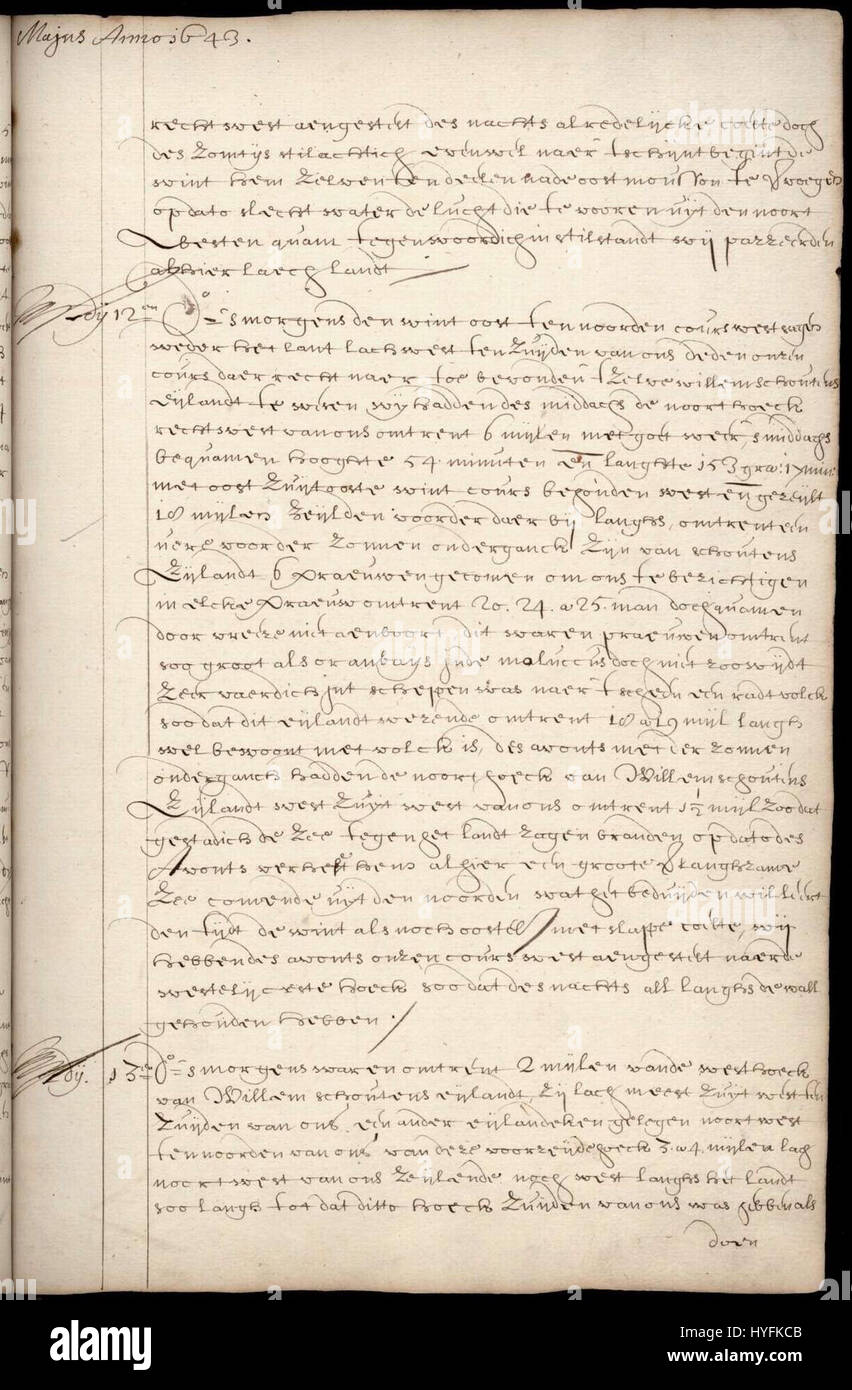 Majus Anno 1643.
recht west aengestelt des nachts alredelijcke coelte doch
des zomtijs stilachtich evenwel naer tschijnt begint de
wint hem zelven ten deelen nade oost mousson te voegen
op dato slecht water de lucht die te vooren uijt den noort
westen quam tegenwoordich in stilstandt wij passeerden
alhier laech landt
Ady 12en do smorgens den wint oost ten noorden cours west sagen
weder het lant lach west ten zuijden van ons deden onzen
cours daer recht naer toe bevonden tzelve willem schoutens
eijlandt te wesen wij hadden des middachs de noorthoeck
recht west van ons omtrent 6 mijlen met goet weer, smiddachs
bequamen hooghte 54 minuten en langhte 153 gra: 17 min:
met oost zuijt ooste wint cours behouden west en gezeijlt
18 mijlen zeijlden voorder daer bij langhs, omtrent een
uere voorder zonnen onderganck zijn van schoutens
Eijlandt 6 praeuwen gecomen om ons te bezichtigen
in elcke praeuw omtrent 20. 24. a 25. man doch quamen
door vreeze niet aen boort, dit waren praeuwen omtrent
soo groot als oranbays inde moluccus doch niet zoo wijdt
zeer vaerdich int schepen was naer tscheen een radt volck
soo dat dit eijlandt wezende omtrent 18 a 19 mijl langh
wel bewoont met volck is, des avonts met der zonnen
onderganch hadden de noorthoeck van Willem schoutens
Eijlandt west zuijt west van ons omtrent 1½ mijl zoo dat
gestadich de zee tegen het landt zagen branden op dato des
Avonts verheft hem alhier een groote langhzame
zee comende uijt den noorden wat het beduijden wil leert
den tijdt de wint als noch oostel. met slappe coelte, wij
hebben des avonts onzen cours west aengestelt naer de
westelijcxste hoeck soo dat des nachts all langhs de wall
gehouden hebben.
Ady. 13en do smorgens waren omtrent 2 mijlen vande westhoeck
van Willem schoutens eijlandt, zij lach meest zuijt west ten
zuijden van ons, een ander eijlandeken gelegen noort west
ten noorden van ons van deze voorzeijde hoeck 3. a 4. mijlen lach
noort west van ons zeijlende noch west langhs het landt
soo langh tot dat ditto hoeck zuijden van ons was hebben als
doen
alamy
Image ID: HYFKCB
www.alamy.com